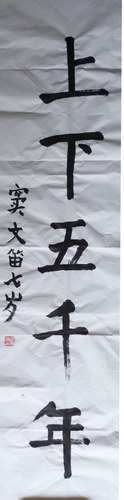 上下五千年
窦文笛七岁